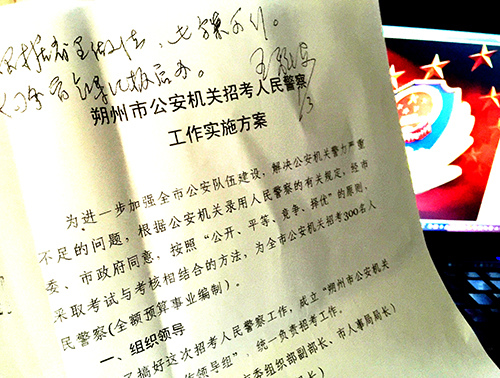 朔州市公安机关招考人民警察
工作实施方案
为进一步加强全市公安队伍建设，解决公安机关警力严重
不足的问题，根据公安机关录用人民警察的有关规定，经市
委、市政府同意，按照“公开、平等、竞争、择优”的原则，
采取考试与考核相结合的方法，为全市公安机关招考300名人
民警察(全额预算事业编制)。
一、组织领导
了搞好这次招考人民警察工作，成立“朔州市公安机关
作领导组”，统一负责招考工作。
委组织部副部长、市人事局局长)